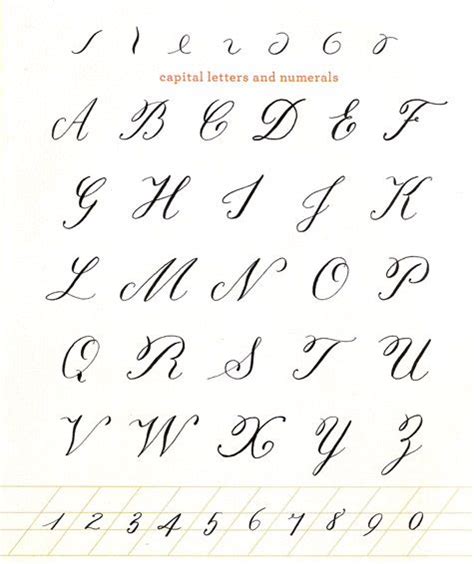 capital letters and numerals
A B C D E F
G H I J K
L M N O P
Q R S T U
V W X Y Z
1 2 3 4 5 6 7 8 9 0